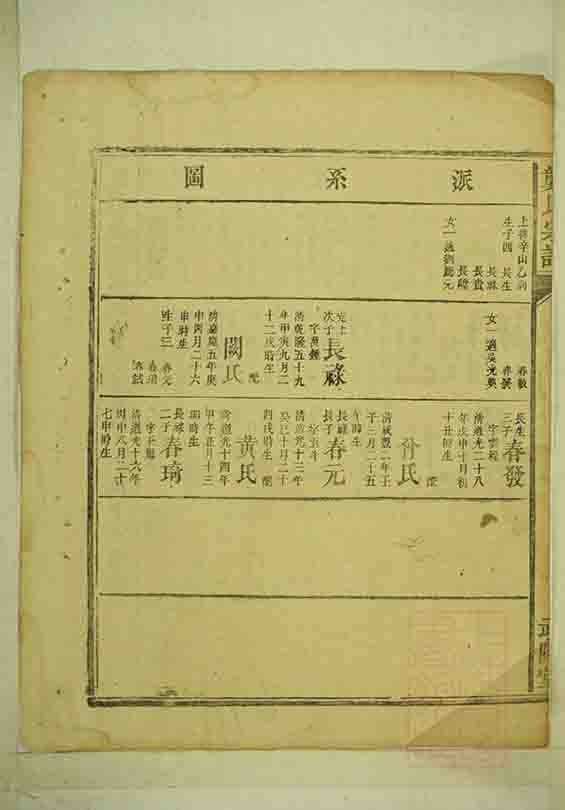 派系圖
上蔣辛山乙向
生子四 長生
長祿
長貴
長
女一適劉
春發
女一適吳光
元上
次子 長祿
字
清乾隆五十九
年甲寅九月二
十二戌時生
配
闕氏
清嘉慶五年庚
申四月二十六
申時生
生子三 春元
春琦
春試
長生
三子 春發
字雲程
清道光二十八
年戊申十月初
十丑時生
配
氏
清咸豐二年壬
子三月二十五
午時生
長祿
長子 春元
字五斗
清道光十三年
癸巳十月二十
四戌時生 配
黃氏
清道光十四年
甲午正月十三
時生
長祿
二子 春琦
字
清道光十六年
丙申八月二十
七申時生
氏宗譜
堂